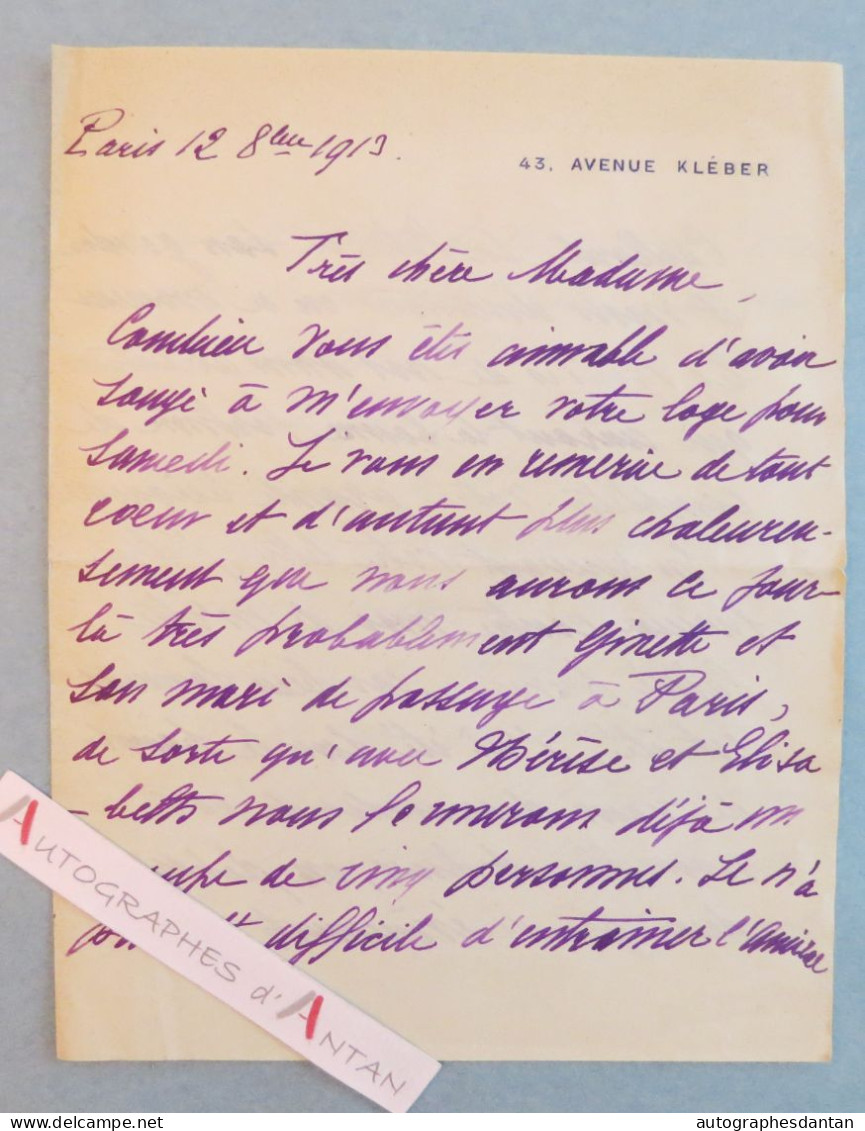 Paris 12 8bre 1913.
43, AVENUE KLÉBER
Très chère Madame,
Combien vous êtes aimable d'avoir
songé à m'envoyer votre loge pour
samedi. Je vous en remercie de tout
coeur et d'autant plus chaleureu-
sement que nous aurons ce jour-
là très probablement Ginette et
son mari de passage à Paris,
de sorte qu'avec Thérèse et Elisa
-beth nous formerons déjà un
de cinq personnes. Ce n'a
difficile d'entraîner l'Amiral
AUTOGRAPHES d'ANTAN
delcampe.net
autographesdantan